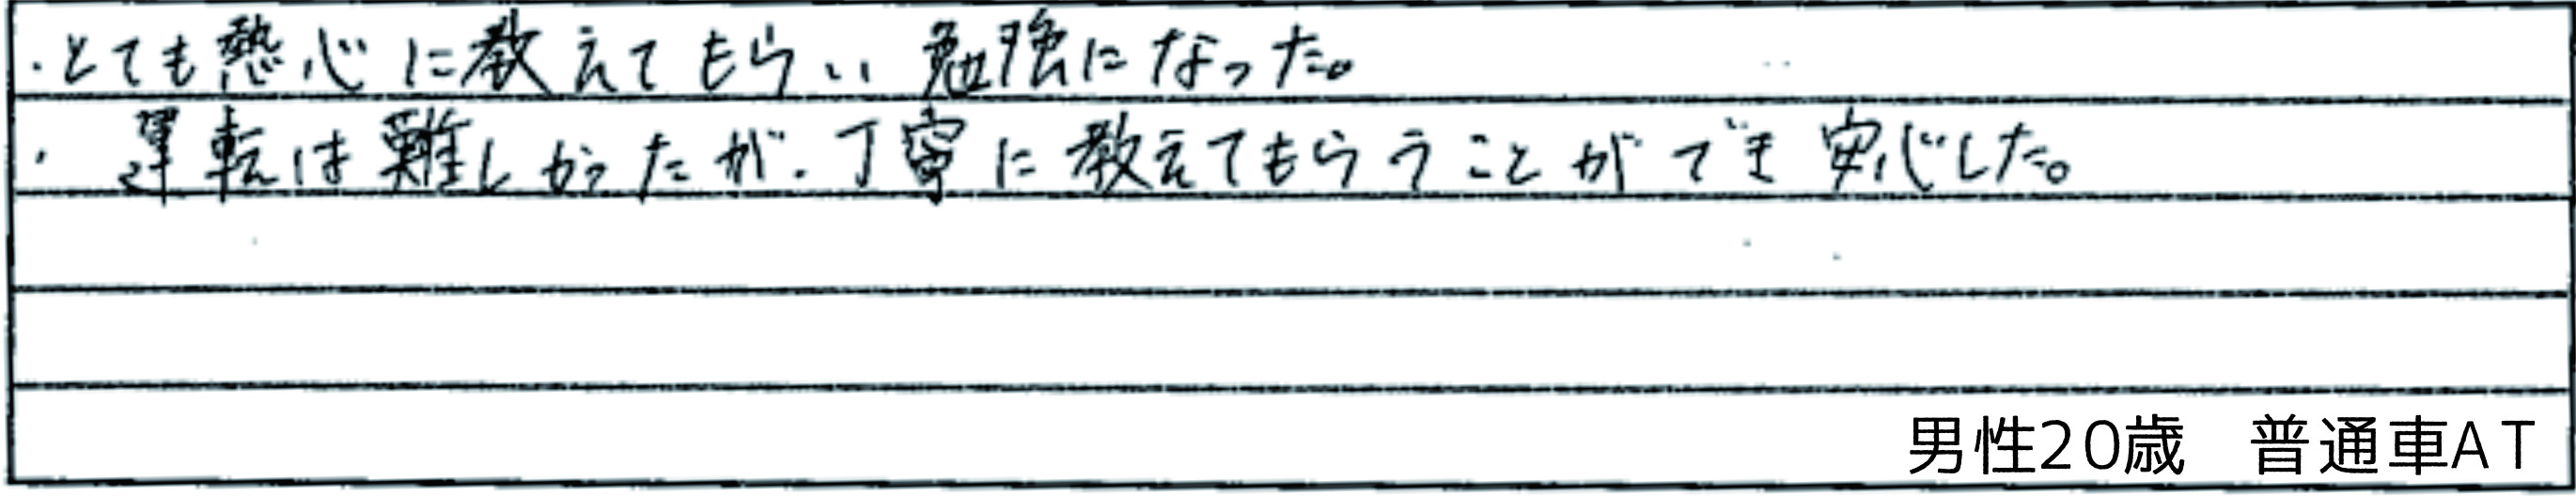 ・とても熱心に教えてもらい勉強になった。
・運転は難しかったが、丁寧に教えてもらうことができ安心した。
男性20歳　普通車AT